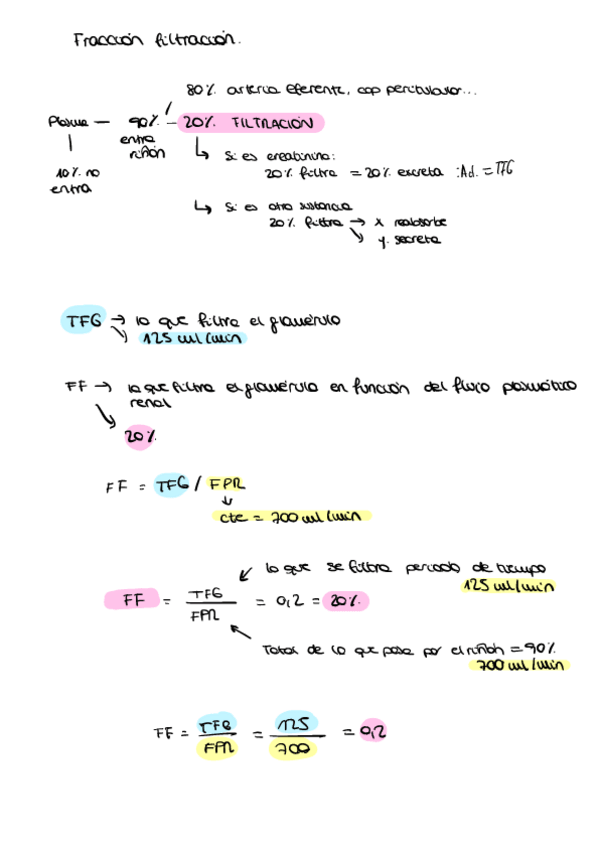 Fracción filtración.
80% arteria eferente, cap peritubular...
Plasma — 90% — 20% FILTRACIÓN
entra
riñón
10% no
entra
Si es creatinina:
20% filtra = 20% excreta :Ad. = TFG
Si es otra sustancia
20% filtra → x reabsorbe
y. secreta
TFG → lo que filtra el glomérulo
125 ml/min
FF → lo que filtra el glomérulo en función del flujo plasmático
renal
20%
FF = TFG / FPR
cte = 700 ml/min
lo que se filtra periodo de tiempo
125 ml/min
FF = TFG / FPR = 0,2 = 20%
Total de lo que pasa por el riñón = 90%
700 ml/min
FF = TFG / FPR = 125 / 700 = 0,2